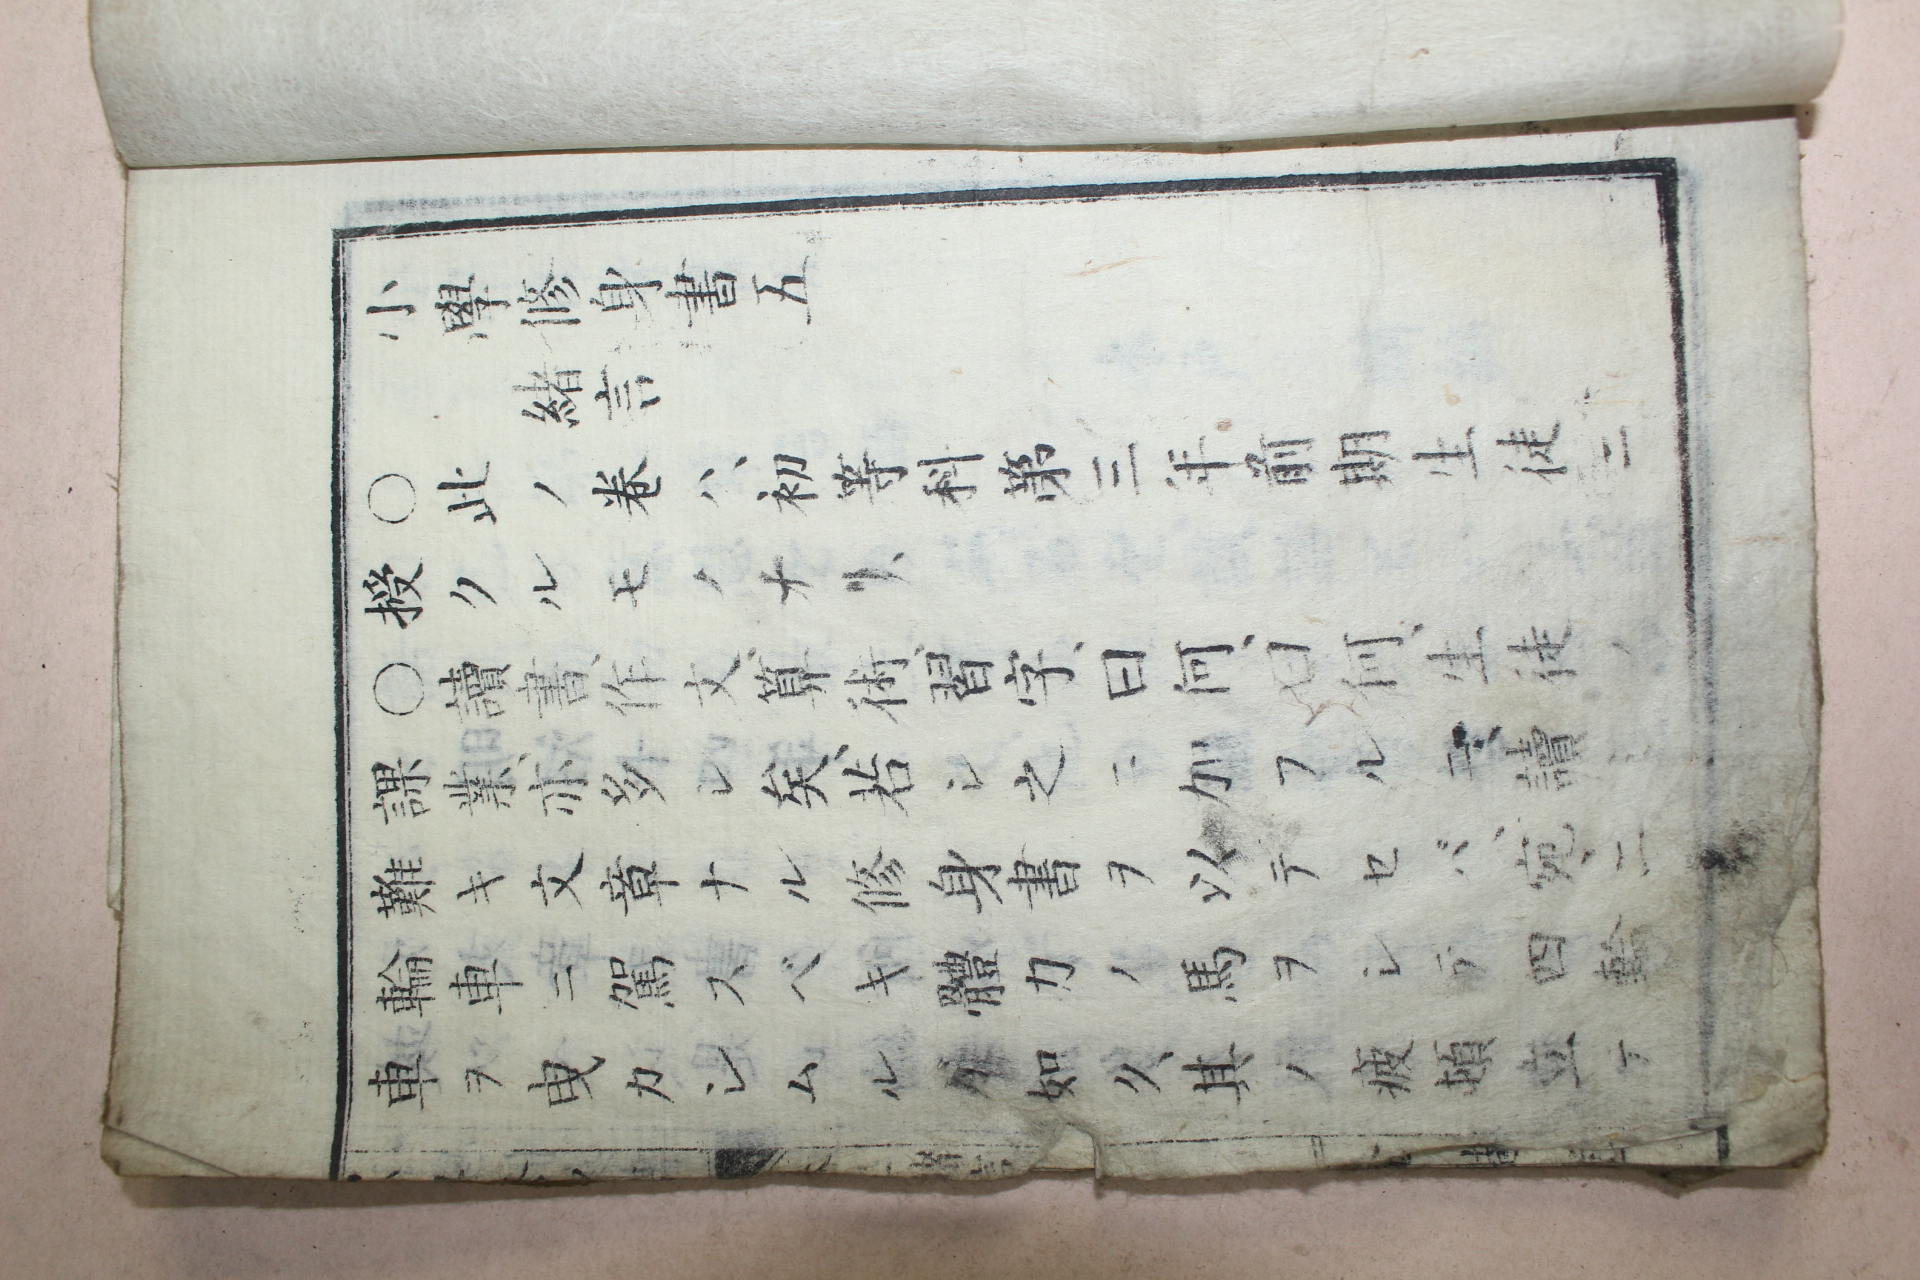 小學修身書五
緖言
○此ノ卷ハ、初等科第三年前期生徒ニ
授クルモノナリ、
○讀書、作文、算術、習字、曰何、曰何、生徒ノ
課業、亦多シ矣、若シ之ニ加フルニ、讀ミ
難キ文章ナル修身書ヲ以テセバ、宛、二
輪車ニ駕スベキ體力ノ馬ヲシテ四輪
車ヲ曳カシムルガ如ク、其ノ疲頓立テ
緖言